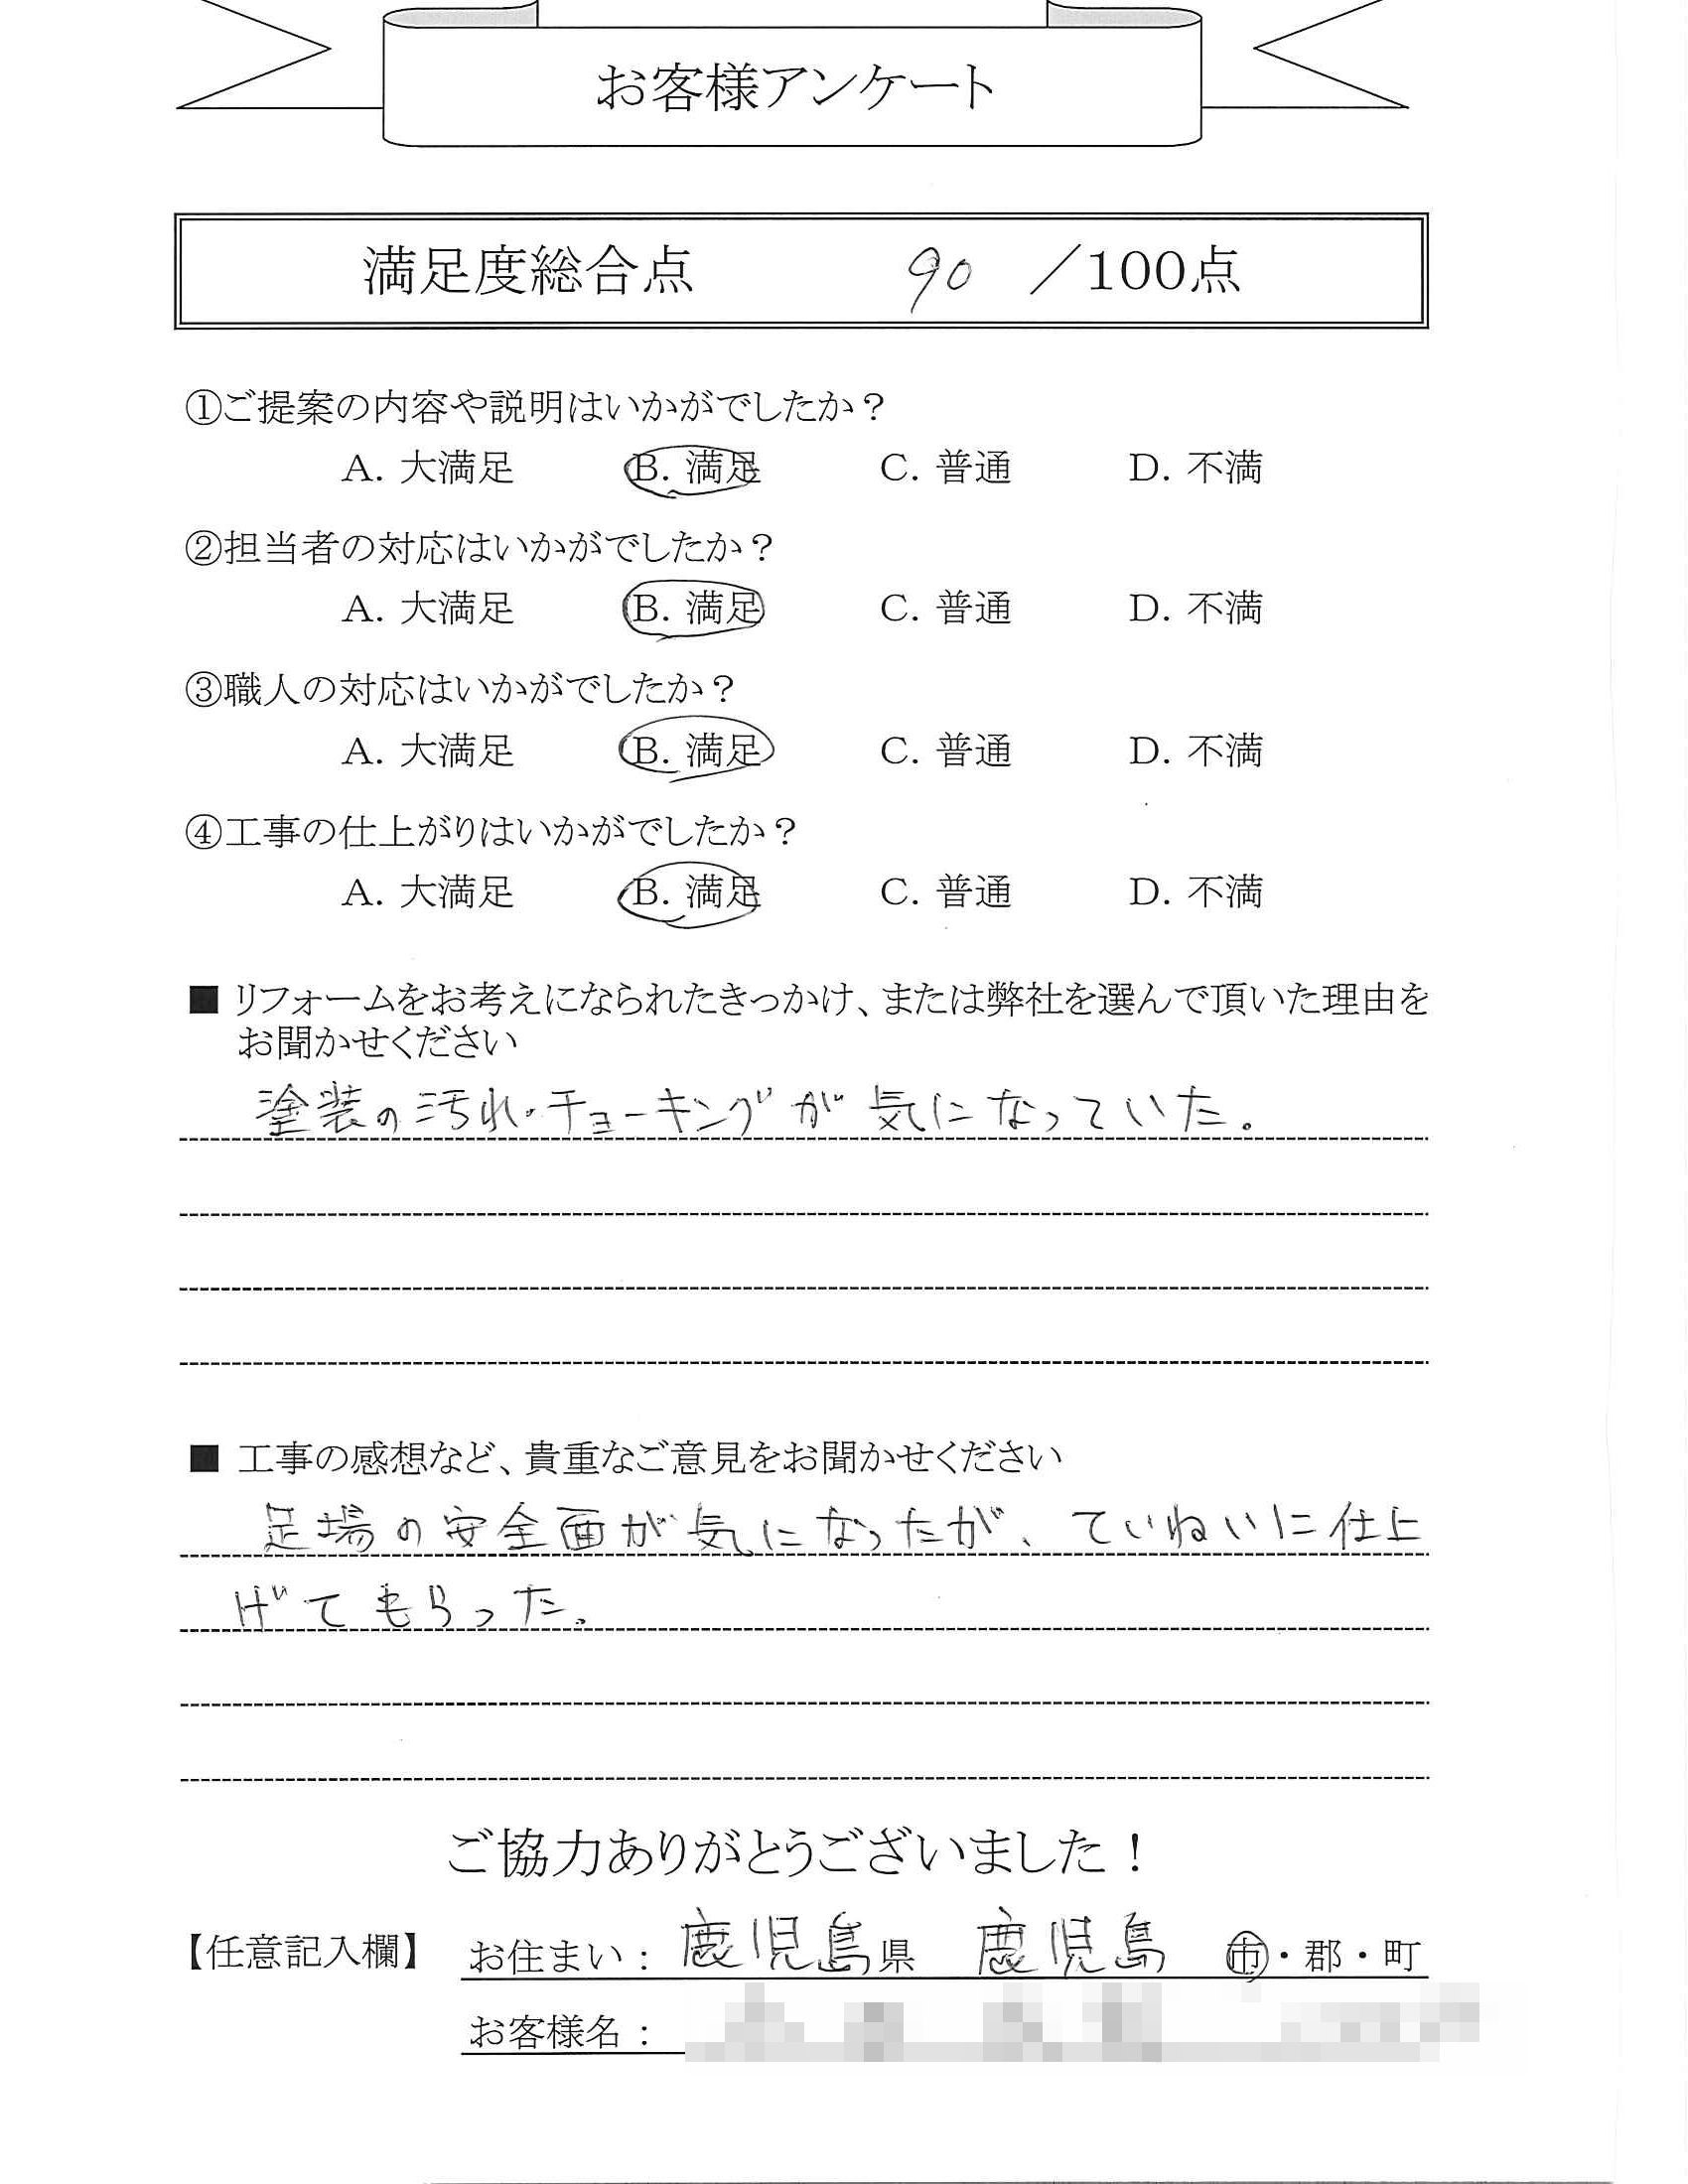 お客様アンケート
満足度総合点 90 ／100点
①ご提案の内容や説明はいかがでしたか？
A. 大満足 B. 満足 C. 普通 D. 不満
②担当者の対応はいかがでしたか？
A. 大満足 B. 満足 C. 普通 D. 不満
③職人の対応はいかがでしたか？
A. 大満足 B. 満足 C. 普通 D. 不満
④工事の仕上がりはいかがでしたか？
A. 大満足 B. 満足 C. 普通 D. 不満
■ リフォームをお考えになられたきっかけ、または弊社を選んで頂いた理由を
お聞かせください
塗装の汚れ・チョーキングが気になっていた。
■ 工事の感想など、貴重なご意見をお聞かせください
足場の安全面が気になったが、ていねいに仕上
げてもらった。
ご協力ありがとうございました！
【任意記入欄】 お住まい： 鹿児島県 鹿児島 市・郡・町
お客様名：